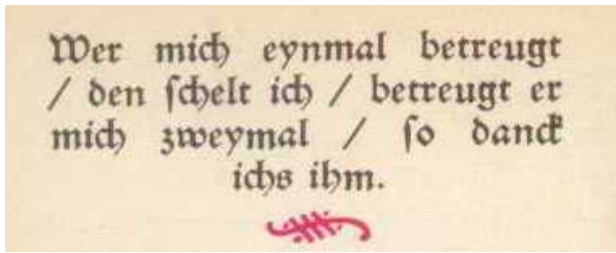 Wer mich eynmal betreugt
/ den ſchelt ich / betreugt er
mich zweymal / ſo danck
ichs ihm.